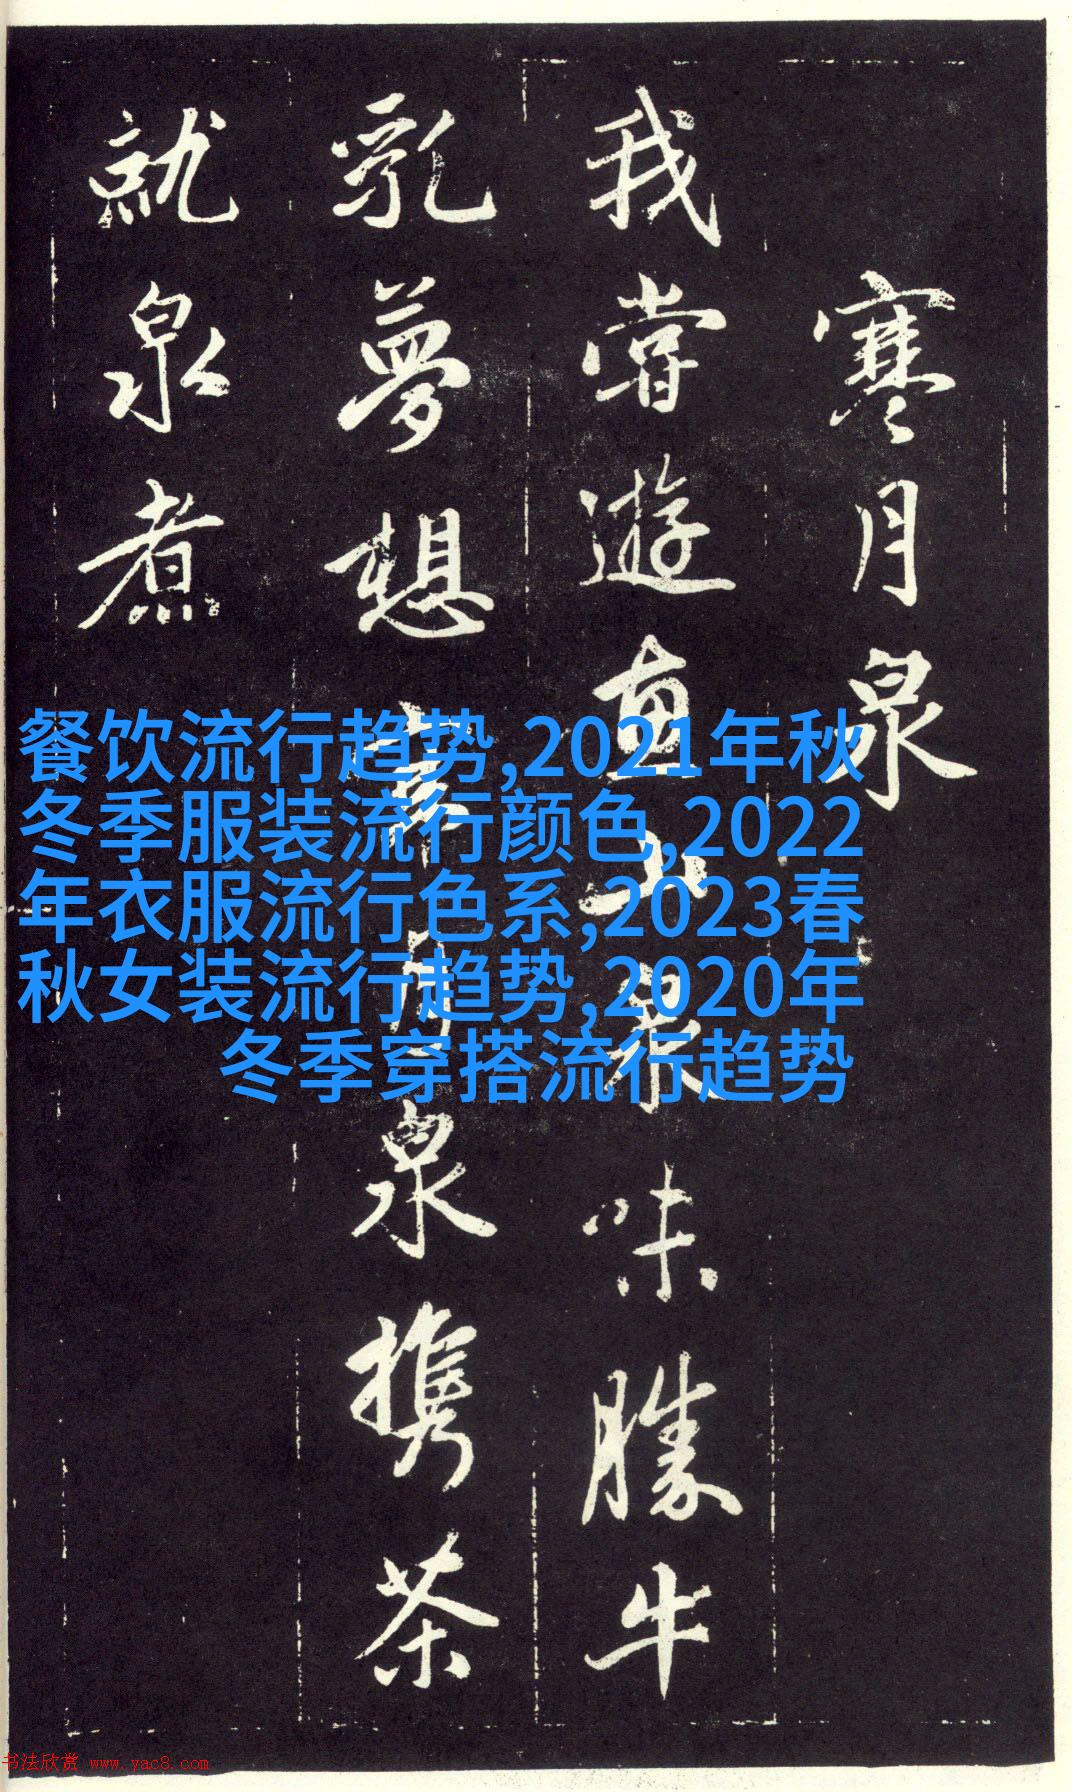 寒月泉
我嘗遊惠山泉味勝牛
乳夢想寒月泉攜茶
就泉煮
餐饮流行趋势,2021年秋
冬季服装流行颜色,2022
年衣服流行色系,2023春
秋女装流行趋势,2020年
冬季穿搭流行趋势
书法欣赏 www.yac8.com